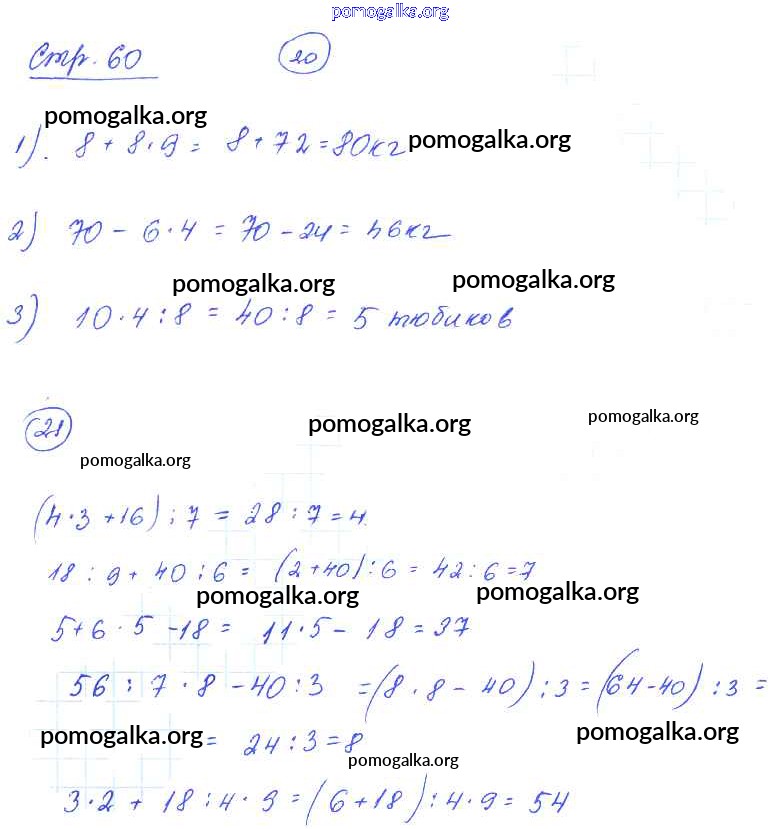 pomogalka.org
Стр. 60 20
pomogalka.org
1). 8 + 8 · 9 = 8 + 72 = 80кг pomogalka.org
2) 70 - 6 · 4 = 70 - 24 = 46кг
pomogalka.org pomogalka.org
3) 10 · 4 : 8 = 40 : 8 = 5 тюбиков
21 pomogalka.org pomogalka.org
pomogalka.org
(4 · 3 + 16) : 7 = 28 : 7 = 4.
18 : 9 + 40 : 6 = (2 + 40) : 6 = 42 : 6 = 7
pomogalka.org pomogalka.org
5 + 6 · 5 - 18 = 11 · 5 - 18 = 37
56 : 7 · 8 - 40 : 3 = (8 · 8 - 40) : 3 = (64 - 40) : 3 =
pomogalka.org = 24 : 3 = 8 pomogalka.org
pomogalka.org
3 · 2 + 18 : 4 · 9 = (6 + 18) : 4 · 9 = 54